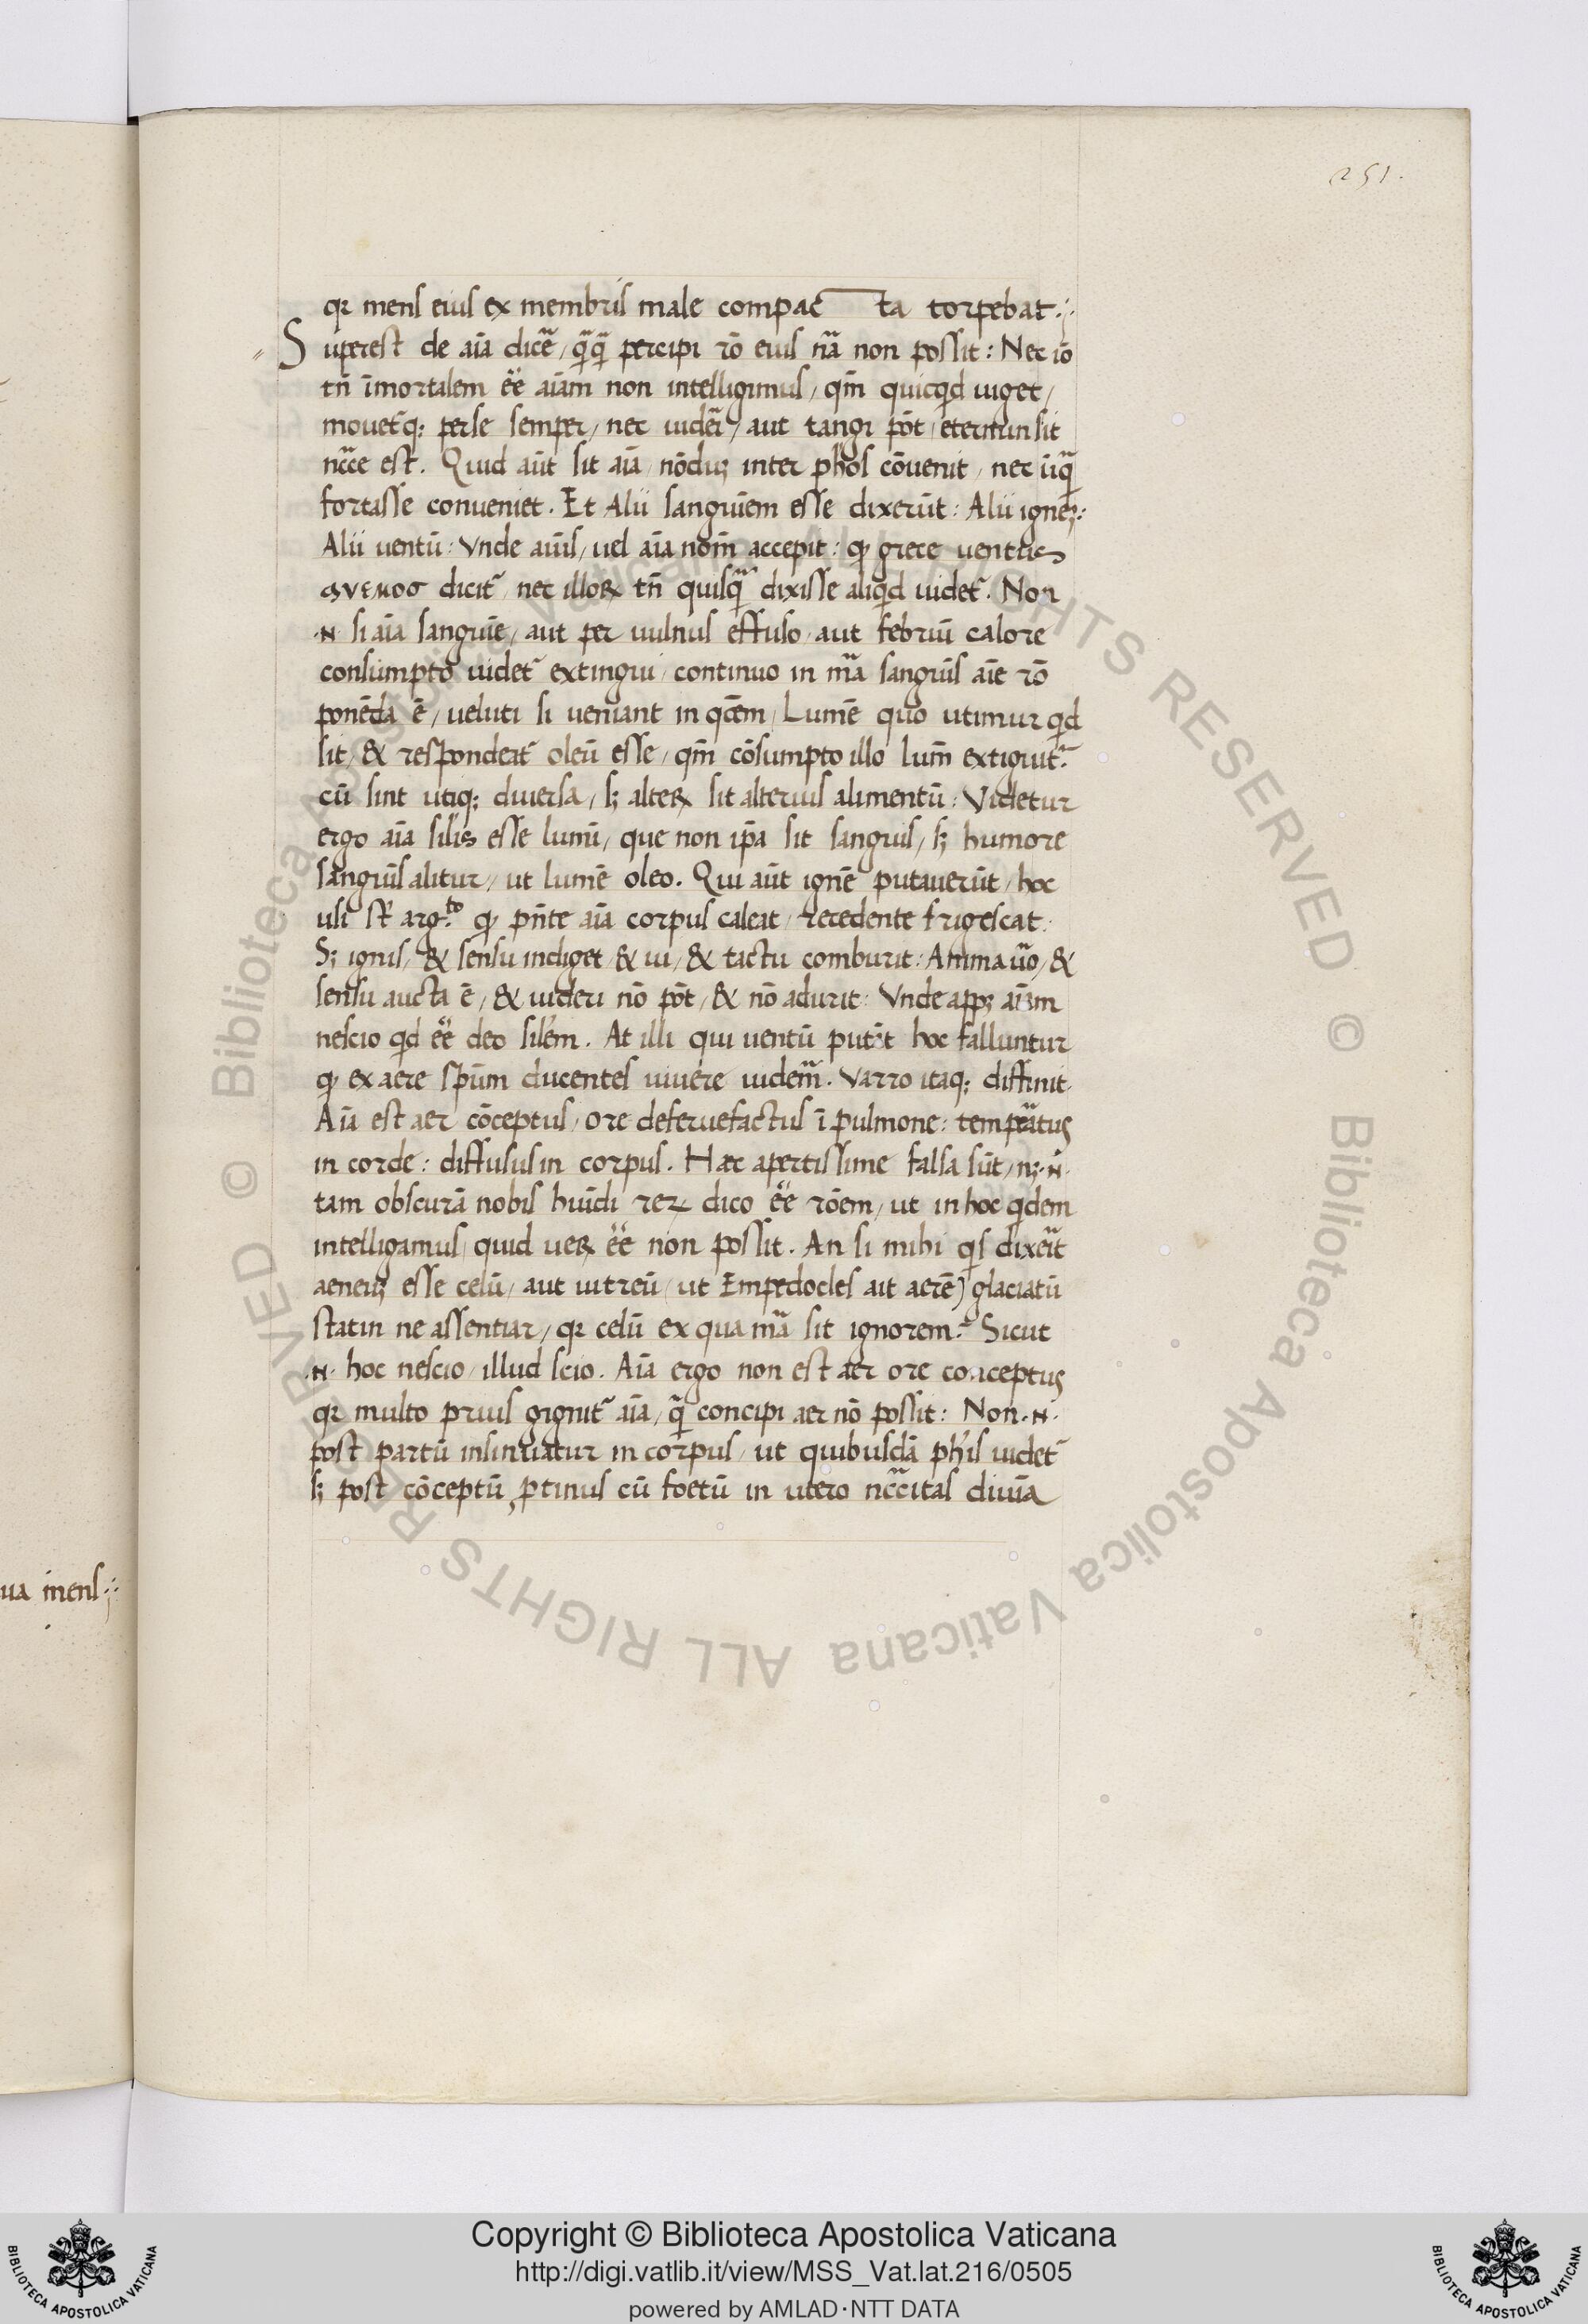 251.
qr mens eius ex membris male compac ta torpebat :
Superest de aīa dicē / q̄q̄ percipi rō eius nā non possit : Nec iō
tn̄ īmortalem ēē aīam non intelligimus / qm̄ quicqd uiget /
mouetq; perse semper / nec uideri / aut tangi pōt / eternum sit
ncc̄e est . Quid aūt sit aīa / nōduȝ inter phōs cōuenit / nec ūq̄
fortasse conueniet . Et Alii sanguīem esse dixerūt : Alii igneȝ :
Alii uentū : Vnde aīus / uel aīa nom̄ accepit : qꝫ grece uentus
ανεμοσ dicit᷑ nec illoꝝ tn̄ quisq̄ dixisse aliqd uidet᷑ . Non
.N. si aīa sanguīe / aut per uulnus effuso / aut febriū calore
consumpto uidet᷑ extingui / continuo in mā sanguīs aīe rō
ponēda ē / ueluti si ueniant in qōem / Lumē quo utimur qd
sit / & respondeat᷑ oleū esse / qm̄ cōsumpto illo lum̄ extiguit᷑
cū sint utiq; diuersa / sȝ alteꝝ sit alterius alimentū : Videtur
ergo aīa silis esse lumī / que non ip̄a sit sanguis / sȝ humore
sanguīs alitur / ut lumē oleo . Qui aūt ignē putauerūt / hoc
usi st̄ arg.to qꝫ pn̄te aīa corpus caleat / recedente frigescat .
Sȝ ignis / & sensu indiget & ui / & tactu comburit : Anima ūo / &
sensu aucta ē / & uideri nō pōt / & nō adurit : Vnde appȝ aīam
nescio qd ēē deo silem . At illi qui uentū putāt hoc falluntur
qꝫ ex aere sp̄um ducentes uiuere uidem᷑ . Varro itaq; diffinit
Aīa est aer cōceptus / ore deferuefactus ī pulmone : tempātus
in corde : diffusus in corpus . Haec apertissime falsa sūt / nȝ .N.
tam obscurā nobis huīdi reꝝ dico ēē rōem / ut in hoc qdem
intelligamus / quid ueꝝ ēē non possit . An si mihi qs dixeīt
aeneuȝ esse celū / aut uitreū / ut Empedocles ait aerē) glaciatū
statin ne assentiar / qr celū ex qua mā sit ignorem ? Sicut
.N. hoc nescio / illud scio . Aīa ergo non est aer ore conceptus
qr multo prius gignit᷑ aīa / q̄ concipi aer nō possit : Non .N.
post partū insinuatur in corpus / ut quibusdā phis uidet᷑
sȝ post cōceptū ꝓtinus cū foetū in utero ncc̄citas diuīa
ua mens :
Copyright © Biblioteca Apostolica Vaticana
http://digi.vatlib.it/view/MSS_Vat.lat.216/0505
powered by AMLAD·NTT DATA
BIBLIOTECA APOSTOLICA VATICANA
BIBLIOTECA APOSTOLICA VATICANA
© Biblioteca Apostolica Vaticana ALL RIGHTS RESERVED © Biblioteca Apostolica Vaticana ALL RIGHTS RESERVED